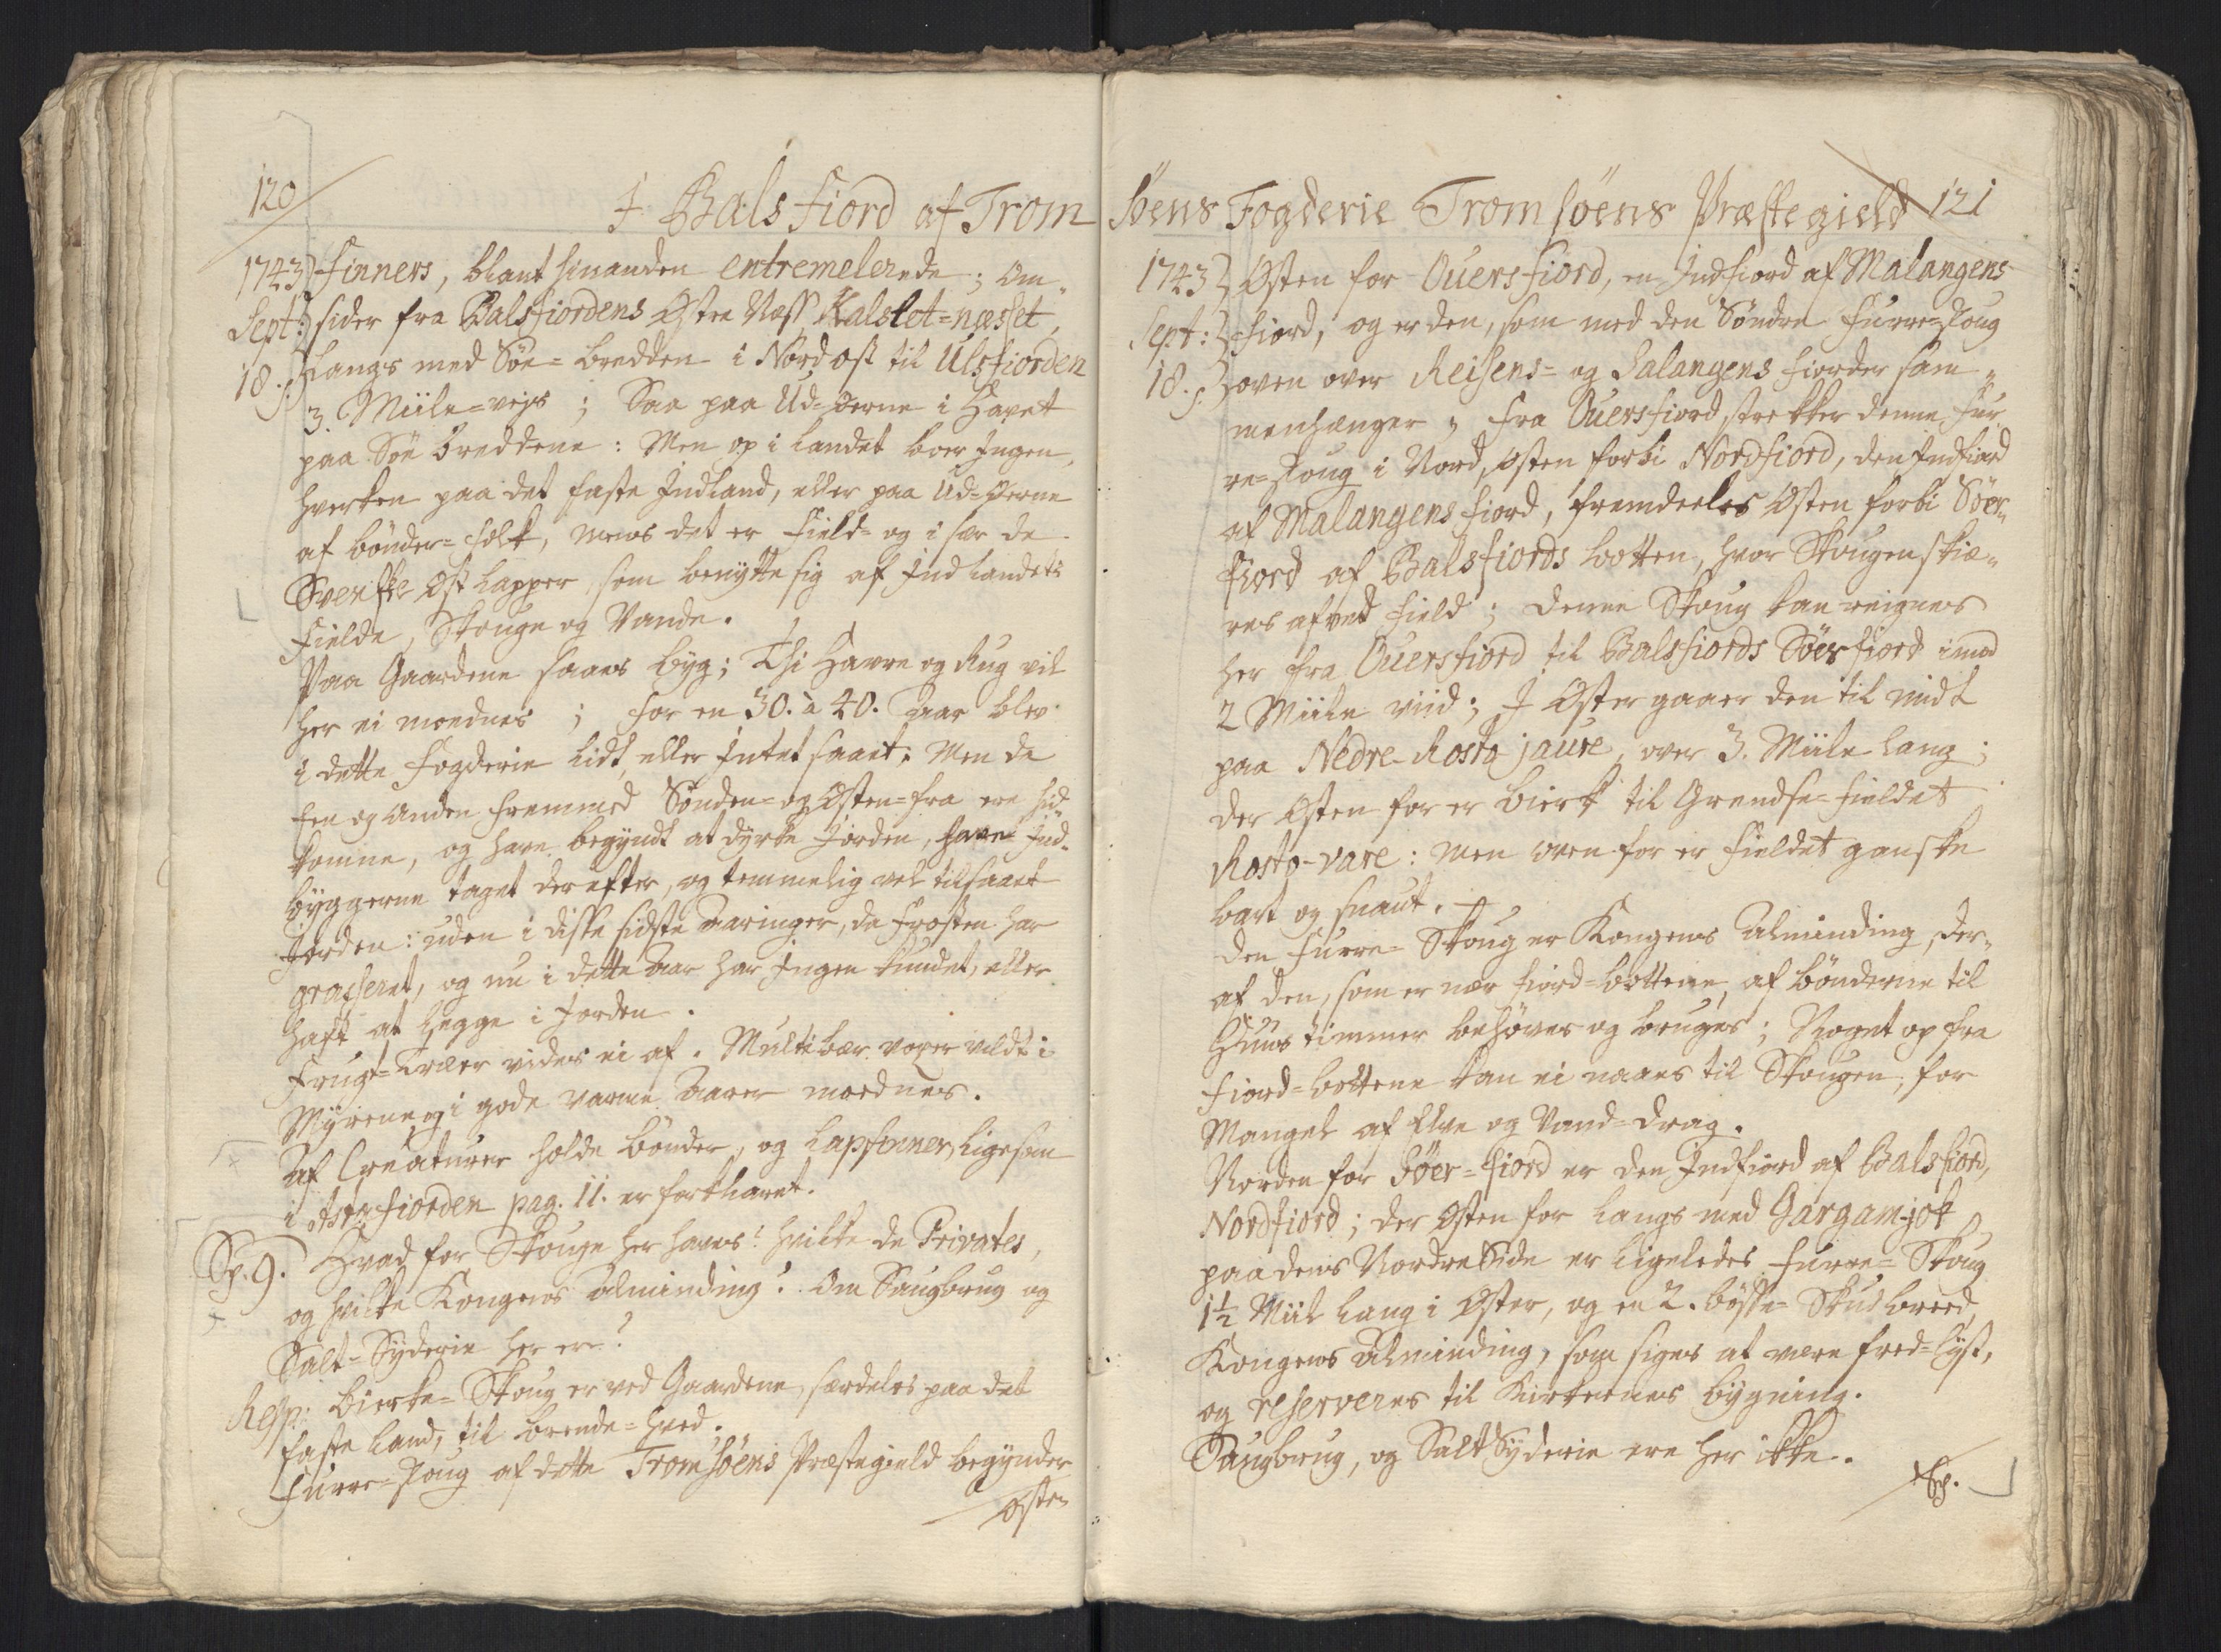 120
I Balsfiord af Trom
1743 Finners, blant hinanden entremelerede; Om„
Sept: sider fra Balsfiordens Østre Næss Kalslet=næsset,
18. s. Langs med Søe=bredden i Nordost til Ulsfiorden
3. Miile=vejs; Saa paa Ud=øerne i Havet
paa Søe breddene: Men op i Landet boer Ingen,
hverken paa det faste Indland, eller paa Ud=øerne
af bönder=folk, mens det er Field= og i sær de
Svenske Øst Lapper, som benytte sig af Indlandets
Fielde, Skouge og Vande.
Paa Gaardene saaes byg; Thi Havre og Rug vil
her ei moednes; for en 30. à 40. Aar blev
i dette Fogderie lidt, eller Intet saaet; Men da
Een og anden fremmed Sønden= og Østen=fra ere hid
komne, og have begyndt at dyrke Jorden, have Ind„
byggerne taget derefter, og temmelig vel tilsaaet
Jorden: uden i disse sidste Aaringer, da frosten har
grasseret, og nu i dette Aar har Ingen kundet, eller
haft at legge i Jorden.
Frugt=Træer vides ei af. Multibær voxer vildt i
Myrene, og i gode varme Aarer moednes.
Af Creaturer holde bönder, og Lapfinner, Ligesom
i Astafiorden pag. 11. er forklaret.
Sp. 9. Hvad for Skouge her haves? hvilke de Privates,
og hvilke Kongens Alminding? Om Saugbrug og
Salt=Syderie her er?
Resp: Bierke=Skoug er ved Gaardene, særdeles paa det
faste Land, til brende=Ved.
Furre=Skoug af dette Tromsöens Præstegield begynder
Østen
söens Fogderie Tromsöens Præstegield 121
1743 Østen for Ouersfiord, en Indfiord af Malangens
Sept: fiord, og er den, som med den Søndre Furre=Skoug
18. s. oven over Reisens= og Salangens fiorder sam„
menhænger; Fra Ouersfiord strekker denne Fur„
re=Skoug i Nord, Østen forbi Nordfiord, den Indfiord
af Malangens fiord, fremdeeles Østen forbi Söer„
Fiord af Balsfiords botten, hvor Skougen skiæ„
res af ved Field; Denne Skoug kan reignes
her fra Ouersfiord til Balsfiords Söerfiord imod
2 Miile viid; I Øster gaaer den til midt
paa Nedre-Rosta jaure, over 3. Miile lang;
der Østen for er bierk til Grendse=Fieldet
Rosto-vare: men oven for er Fieldet ganske
bart og snaut.
Den Furre=Skoug er Kongens Alminding, der„
af den, som er nær fiord=bottene, af bönderne til
Huus timmer behøves og bruges; Noget op fra
fiord=bottene kan ei naaes til Skougen, for
Mangel af Elve og Vand=drag.
Norden for Söer=fiord er den Indfiord af Balsfiord,
Nordfiord; der Østen for langs med Gargamjok
paa dens Nordre Side er ligeledes Furre=Skoug
1½ Miil lang i Øster, og en 2. bösse=Skud breed,
Kongens Alminding, som siges at være fred=lyst,
og reserveres til Kirkernes bygning.
Saugbrug, og Salt Syderie ere her ikke.
Sp.